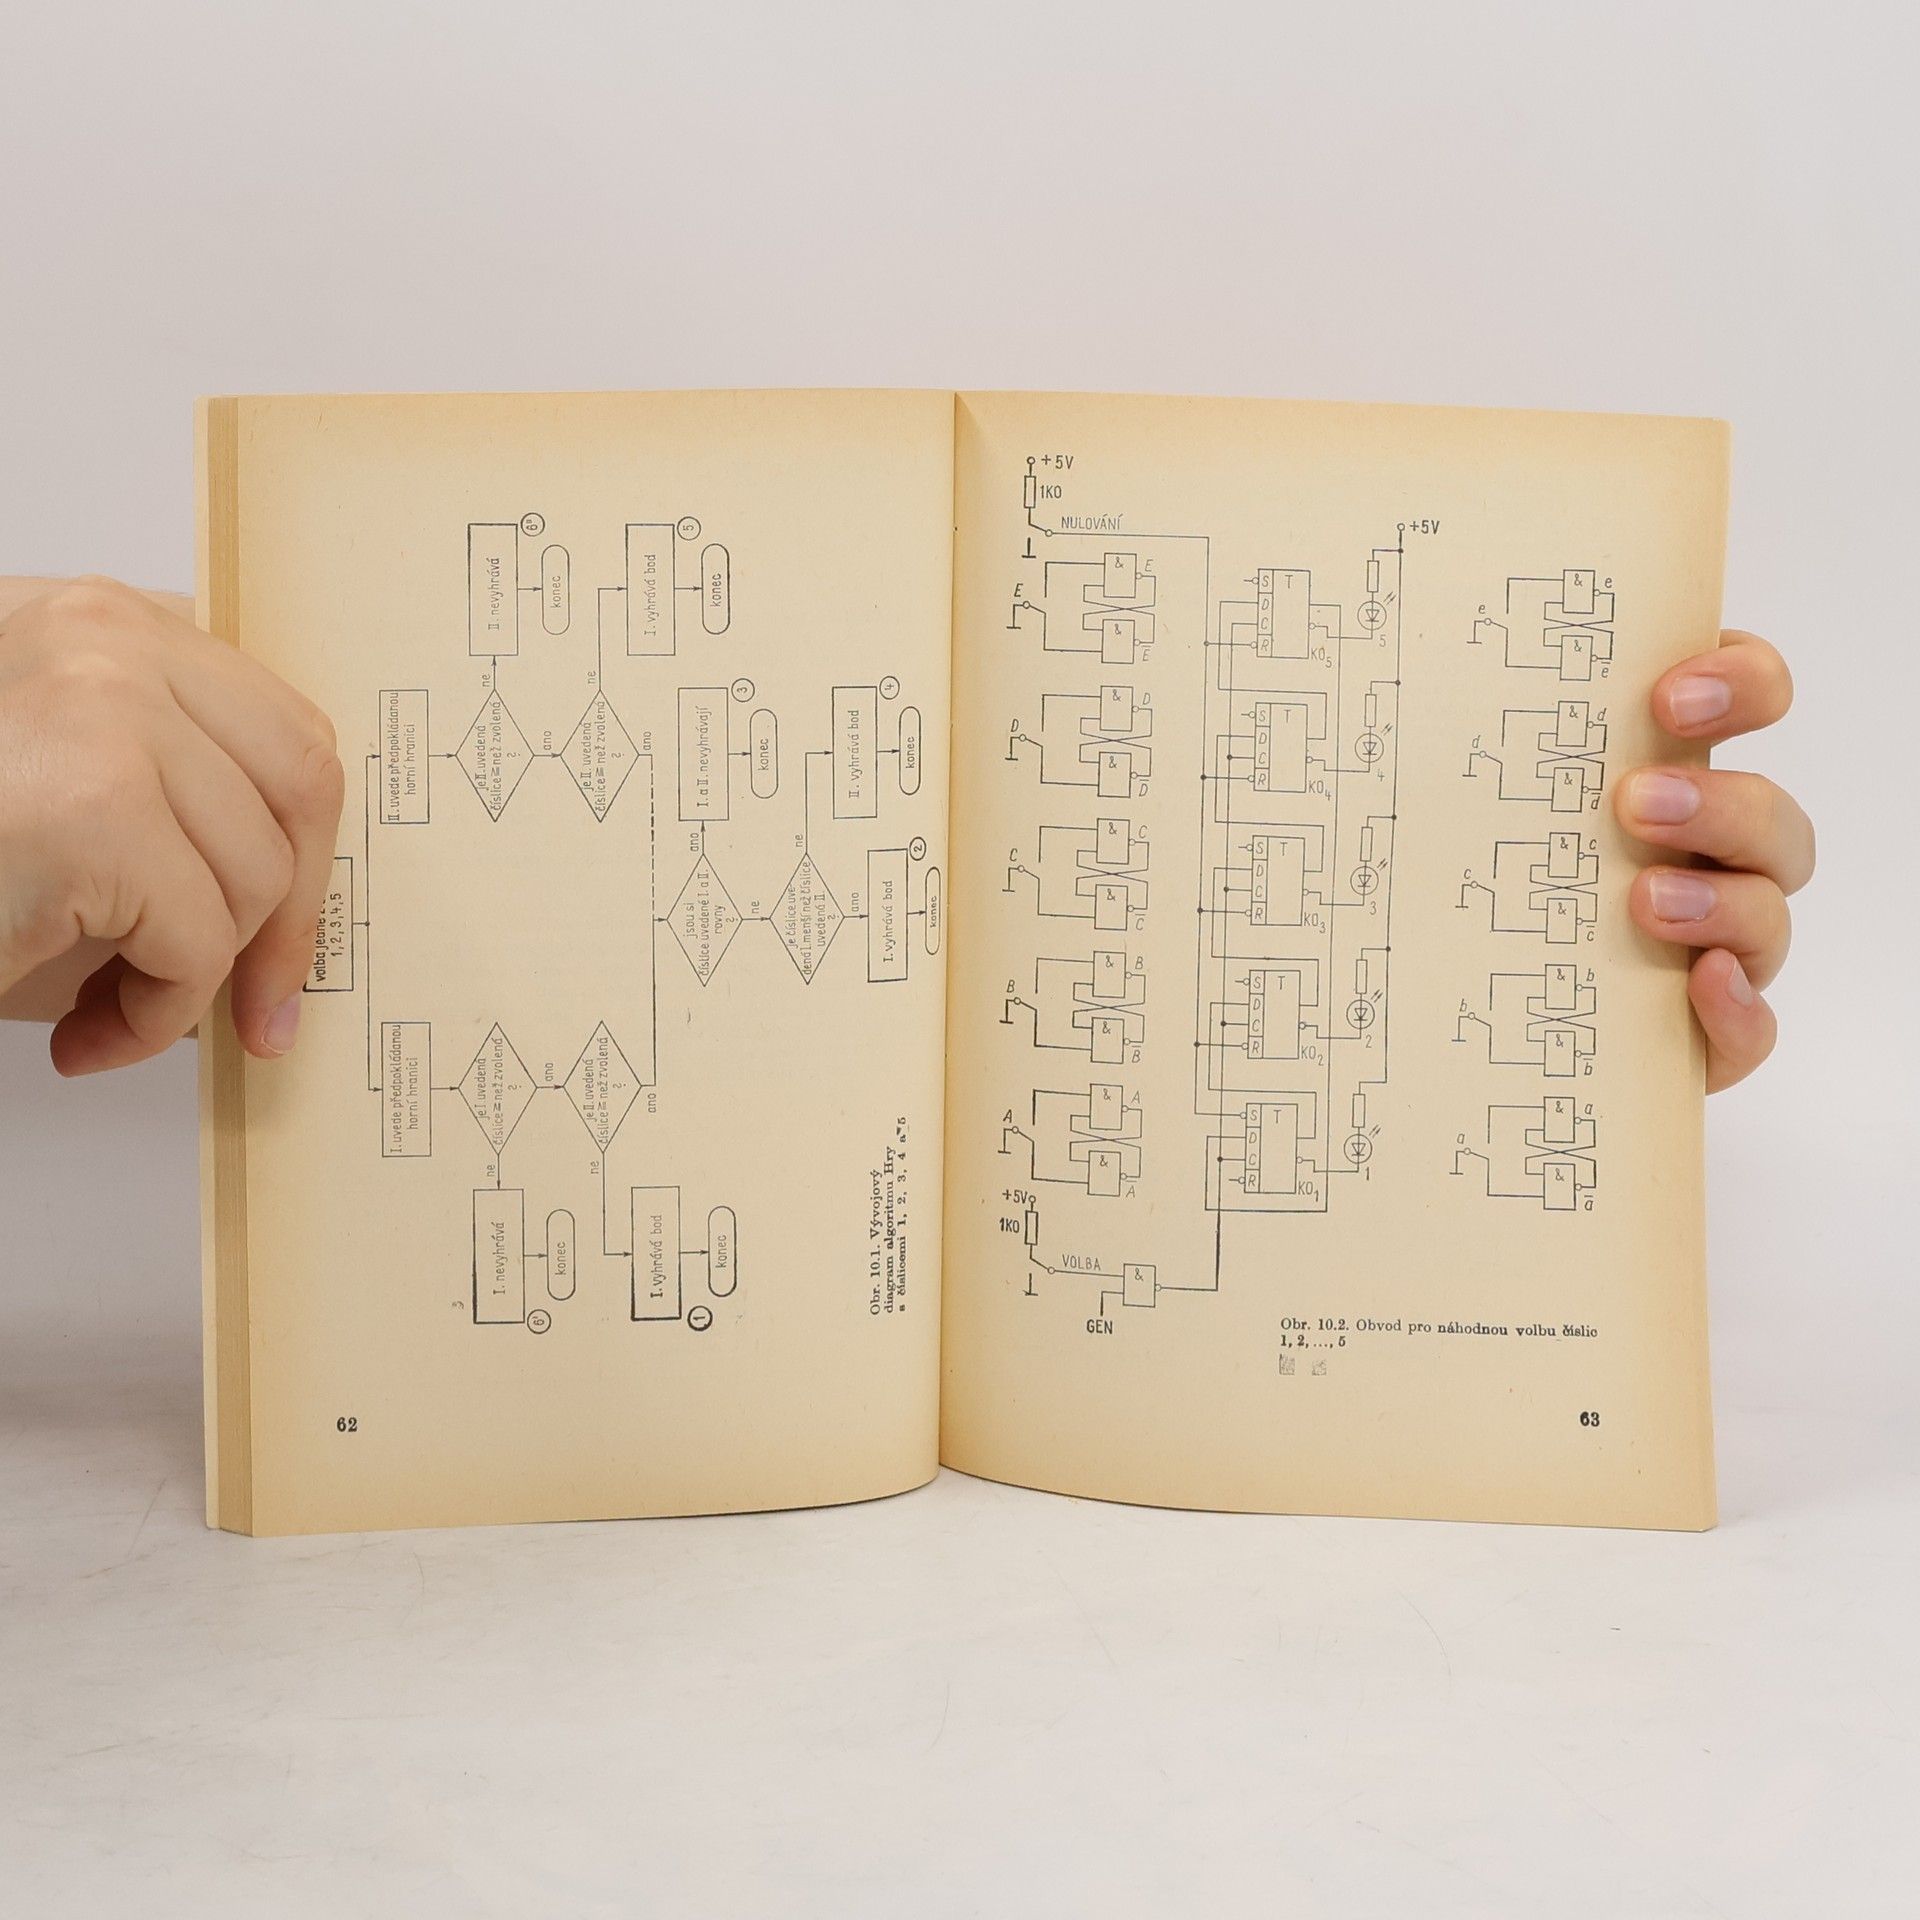 1, 2, 3, 4, 5
I. uvede předpokládanou
horní hranici
II. uvede předpokládanou
horní hranici
je I. uvedená
číslice ≧ než zvolená
?
ne
ano
I. nevyhrává
6'
konec
je II. uvedená
číslice ≧ než zvolená
?
ne
ano
II. nevyhrává
6"
konec
je II. uvedená
číslice ≧ než zvolená
?
ne
ano
I. vyhrává bod
1
konec
je II. uvedená
číslice ≧ než zvolená
?
ne
ano
I. vyhrává bod
5
konec
jsou si
číslice uvedené I. a II.
rovny
?
ano
ne
I. a II. nevyhrávají
3
konec
je číslice uve-
dená I. menší než číslice
uvedená II.
?
ne
ano
II. vyhrává bod
4
konec
I. vyhrává bod
2
konec
Obr. 10.1. Vývojový
diagram algoritmu Hry
s číslicemi 1, 2, 3, 4 a 5
62
+5V
1K0
NULOVÁNÍ
+5V
E
& E
& E̅
D
& D
& D̅
C
& C
& C̅
B
& B
& B̅
A
& A
& A̅
S T
D
C
R
KO5
5
S T
D
C
R
KO4
4
S T
D
C
R
KO3
3
S T
D
C
R
KO2
2
S T
D
C
R
KO1
1
e
& e
& e̅
d
& d
& d̅
c
& c
& c̅
b
& b
& b̅
a
& a
& a̅
+5V
1K0
VOLBA
&
GEN
Obr. 10.2. Obvod pro náhodnou volbu číslic
1, 2, ..., 5
63